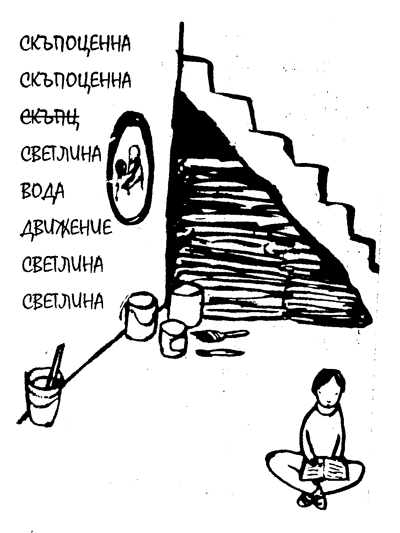 СКЪПОЦЕННА
СКЪПОЦЕННА
СКЪПЦ
СВЕТЛИНА
ВОДА
ДВИЖЕНИЕ
СВЕТЛИНА
СВЕТЛИНА